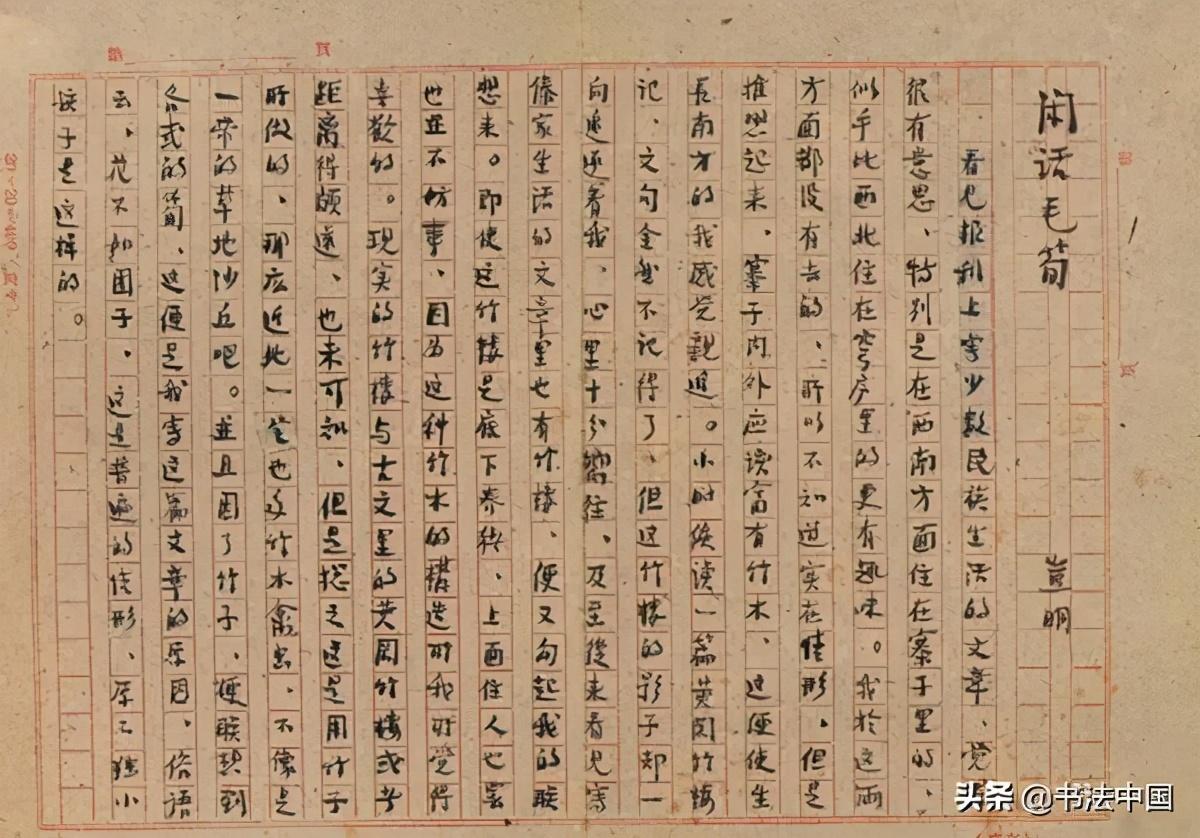 1
闲话毛笋
豈明
看见报刊上写少数民族生活的文章、觉
很有意思、特别是在西南方面住在寨子里的、
似乎比西北住在穹庐里的更有趣味。我於这两
方面都没有去的、所以不知道实在情形。但是
推想起来、寨子内外应该富有竹木、这便使生
长南方的我感觉親近。小时候读一篇黄冈竹楼
记、文句全然不记得了、但这竹楼的影子却一
向追逐着我、心里十分嚮往。及至後来看见写
傣家生活的文章里也有竹楼、便又勾起我的联
想来。即使这竹楼是底下养猪、上面住人也罢
也並不妨事、因为这种竹木的構造所我所觉得
喜歡的。现实的竹楼与古文里的黄冈竹楼或者
距离得颇遠、也未可知、但是总之这是用竹子
所做的、那広近北一定也多竹木禽虫、不像是
一带的草地沙丘吧。並且因了竹子、便联想到
各式的笋、这便是我写这篇文章的原因。俗语
云、花不如团子、这是普遍的情形、原不独小
孩子是这样的。
头条 @书法中国